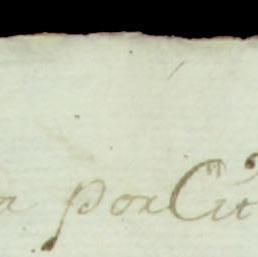 a por Cit